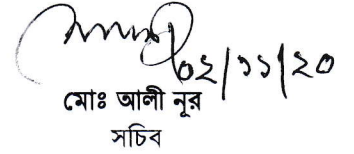 ০২/১১/২০
মোঃ আলী নূর
সচিব